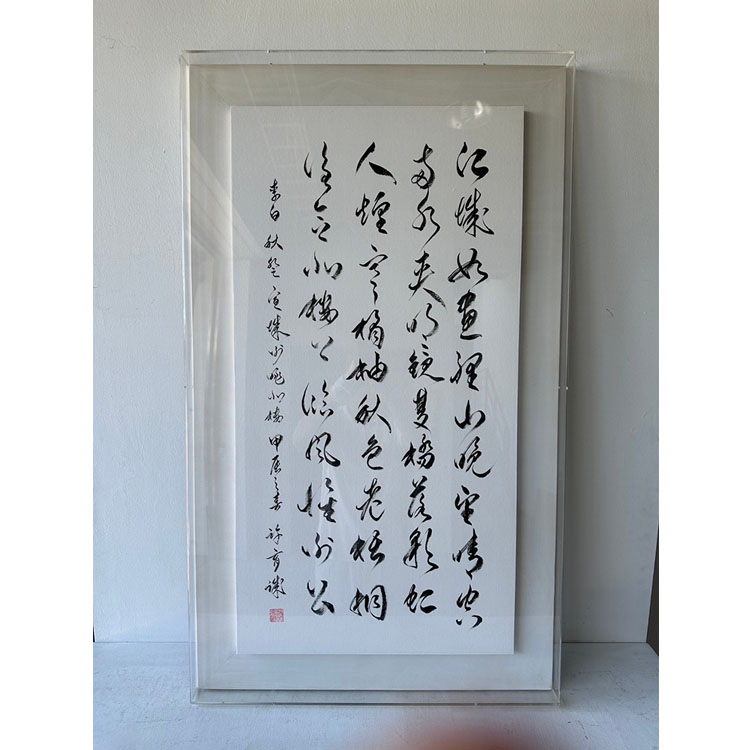 江城如畫裡山晚望晴空
兩水夾明鏡雙橋落彩虹
人煙寒橘柚秋色老梧桐
誰念北樓上臨風懷謝公
李白秋登宣城謝朓北樓甲辰之春許育誠